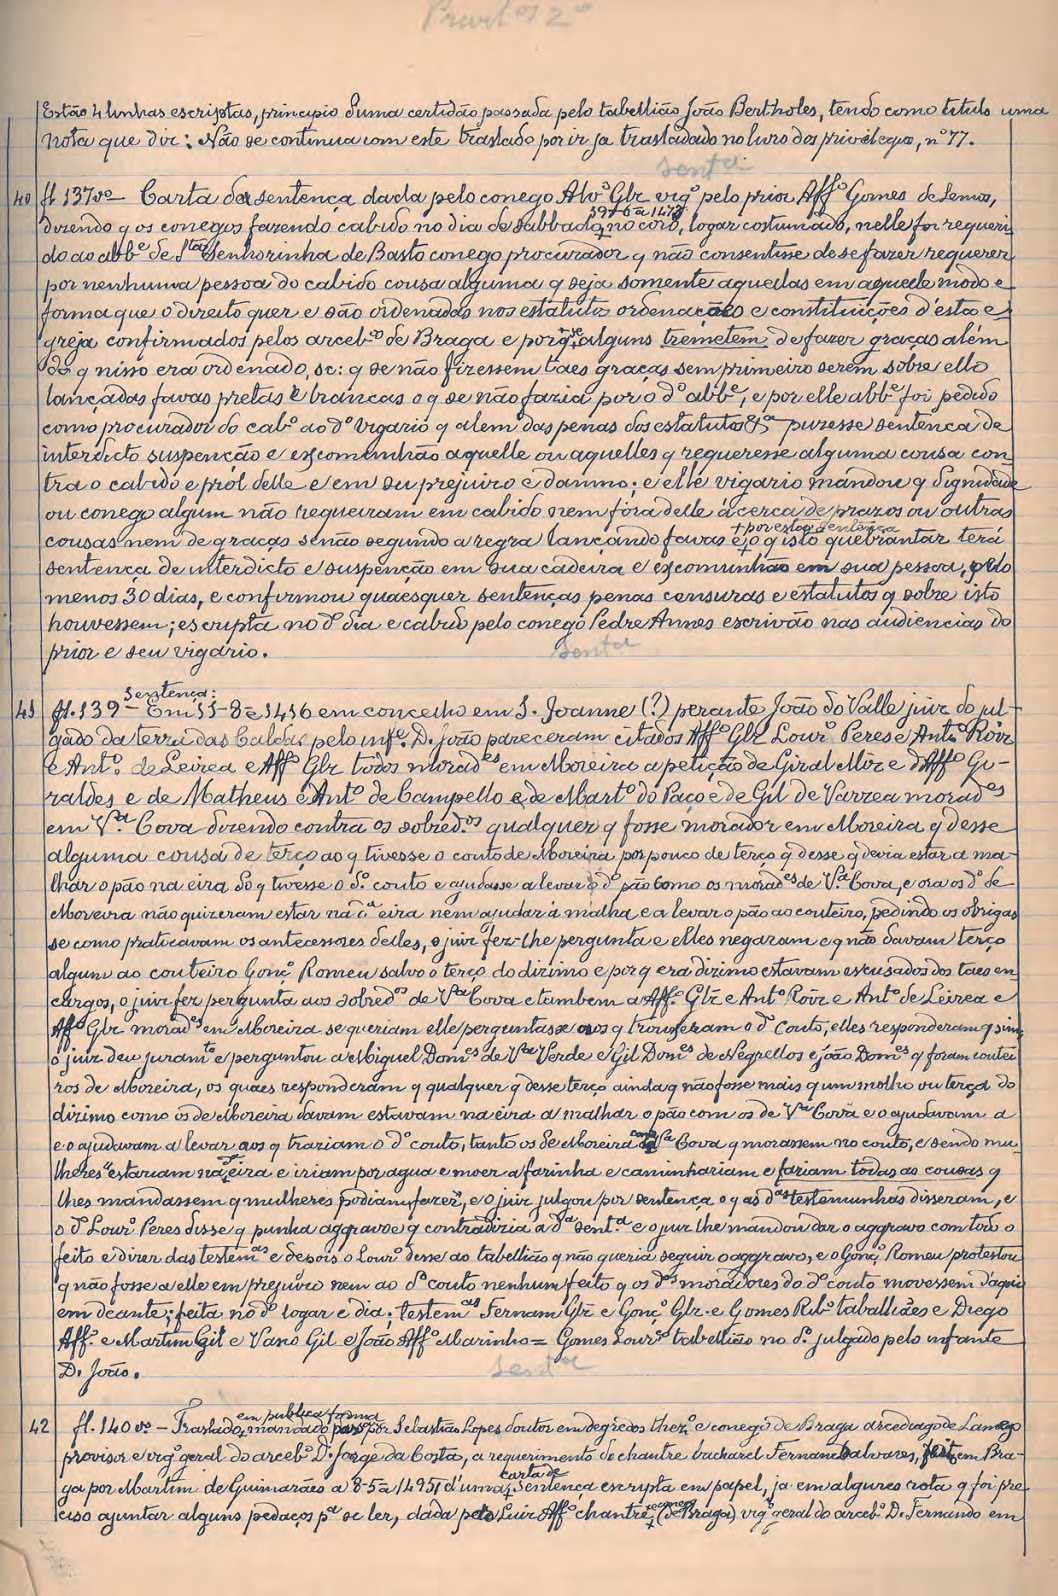 Estão 4 linhas escriptas, principio d'uma certidão passada pelo tabellião João Bertholes, tendo como titulo uma
nota que diz: Não se continua com este traslado por ir ja trasladado no livro dos privilegios, nº 77.
Sentª
40 fl. 137vº — Carta de sentença dada pelo conego Alvº Glz vigº pelo prior Affº Gomes de Lemos,
dizendo q os conegos fazendo cabido no dia de sabbado, no côro, logar costumado, nelle foi requeri
do ao abbe de Sta Senhorinha de Basto conego procurador q não consentisse de se fazer requerer
por nenhuma pessoa do cabido cousa alguma q seja somente aquellas em aquelle modo e
forma que o direito quer e são ordenadas nos estatutos ordenações e constituições d'esta e-
greja confirmados pelos arcebos de Braga e porq se alguns tremetem de fazer graças além
do q nisso era ordenado, sc: q se não fizessem taes graças sem primeiro serem sobre ello
lançadas favas pretas e brancas o q se não fazia por o dº abbe, e por elle abbe foi pedido
como procurador do cabº ao dº vigario q alem das penas dos estatutos &a puzesse sentença de
interdicto suspenção e excomunhão aquelle ou aquelles q requeresse alguma cousa con-
tra o cabido e prol delle e em seu prejuizo e damno; e elle vigario mandou q dignidade
ou conego algum não requeiram em cabido nem fóra delle ácerca de prazos ou outras
+ por esta sentença
cousas nem de graças senão segundo a regra lançando favas e + o q isto quebrantar terá
sentença de interdicto e suspenção em sua cadeira e excomunhão em sua pessoa, pelo
menos 30 dias, e confirmou quaesquer sentenças penas censuras e estatutos q sobre isto
houvessem; escripta no dº dia e cabido pelo conego Pedre Annes escrivão nas audiencias do
prior e seu vigario.
Sentª
Sentença:
41 fl. 139 — Em 11-8-1416 em concelho em S. Joanne (?) perante João do Valle juiz do jul-
gado da terra das Caldas pelo infe. D. João pareceram citados Affº Glz Lourº Peres e Antº Roiz
e Antº. de Leirea e Affº Glz todos morades em Moreira a petição de Giral Mór e d'Affº Gi-
raldes e de Matheus e Antº de Campello e de Martº do Paço e de Gil de Varzea morades
em Vª Cova dizendo contra os sobredos qualquer q fosse morador em Moreira q desse
alguma cousa de terço ao q tivesse o couto de Moreira por pouco de terço q desse q devia estar a ma-
lhar o pão na eira do q tivesse o dº couto e ajudasse a levar o dº pão como os morades de Vª Cova, e ora os dos de
Moreira não quizeram estar na dª eira nem ajudar á malha e a levar o pão ao couteiro, pedindo os obrigas
se como praticavam os antecessores delles, o juiz fez-lhe pergunta e elles negaram e q não davam terço
algum ao couteiro Gonçº Romeu salvo o terço do dizimo e porq era dizimo estavam escusados dos taes en-
cargos, o juiz fez pergunta aos sobredos de Vª Cova e tambem a Affº Glz e Antº Roiz e Antº de Leirea e
Affº Glz morades em Moreira se queriam elle perguntasse aos q trouxeram o dº couto, elles responderam q sim
o juiz deu juramto e perguntou a Miguel Domes de Vª Verde e Gil Domes de Negrellos e João Domes q foram coutei
ros de Moreira, os quaes responderam q qualquer q desse terço ainda q não fosse mais q um molho ou terça do
dizimo como os de Moreira davam estavam na eira a malhar o pão com os de Vª Cova e o ajudavam a
e o ajudavam a levar aos q traziam o dº couto, tanto os de Moreira como Vª Cova q morassem no couto, e sendo mu-
lheres estariam na eira e iriam por agua e moer a farinha e caminhariam e fariam todas as cousas q
lhes mandassem q mulheres podiam fazer, e o juiz julgou por sentença o q as das testemunhas disseram, e
o dº Lourº Peres disse q punha aggravo e q contradizia a dª sentª e o juiz lhe mandou dar o aggravo com todo o
feito e dizer das testemas e depois o Lourº disse ao tabellião q não queria seguir o aggravo, e o Gonçº Romeu protestou
q não fosse a elle em prejuizo nem ao dº couto nenhum feito q os dos moradores do dº couto movessem d'aqui
em deante; feita no dº logar e dia; testemas Fernam Glz e Gonçº Glz e Gomes Ribº taballiães e Diego
Affº e Martim Gil e Vasco Gil e João Affº Marinho = Gomes Lourº tabellião no dº julgado pelo infante
D. João.
Sentª
em publica forma
42 fl. 140 vº — Traslado + mandado passar por Sebastião Lopes doutor em degredos thezº e conego de Braga arcediago de Lamego
provisor e vigº geral do arcebº D. Jorge da Costa, a requerimento do chantre bacharel Fernand'alvares, feito em Bra-
carta de
ga por Martim de Guimarães a 8-5-1495, d'uma + sentença escripta em papel, ja em algures rota q foi pre-
ciso ajuntar alguns pedaços pª se ler, dada pelo Luiz Affº chantre + (de Braga) vigº geral do arcebº D. Fernando em